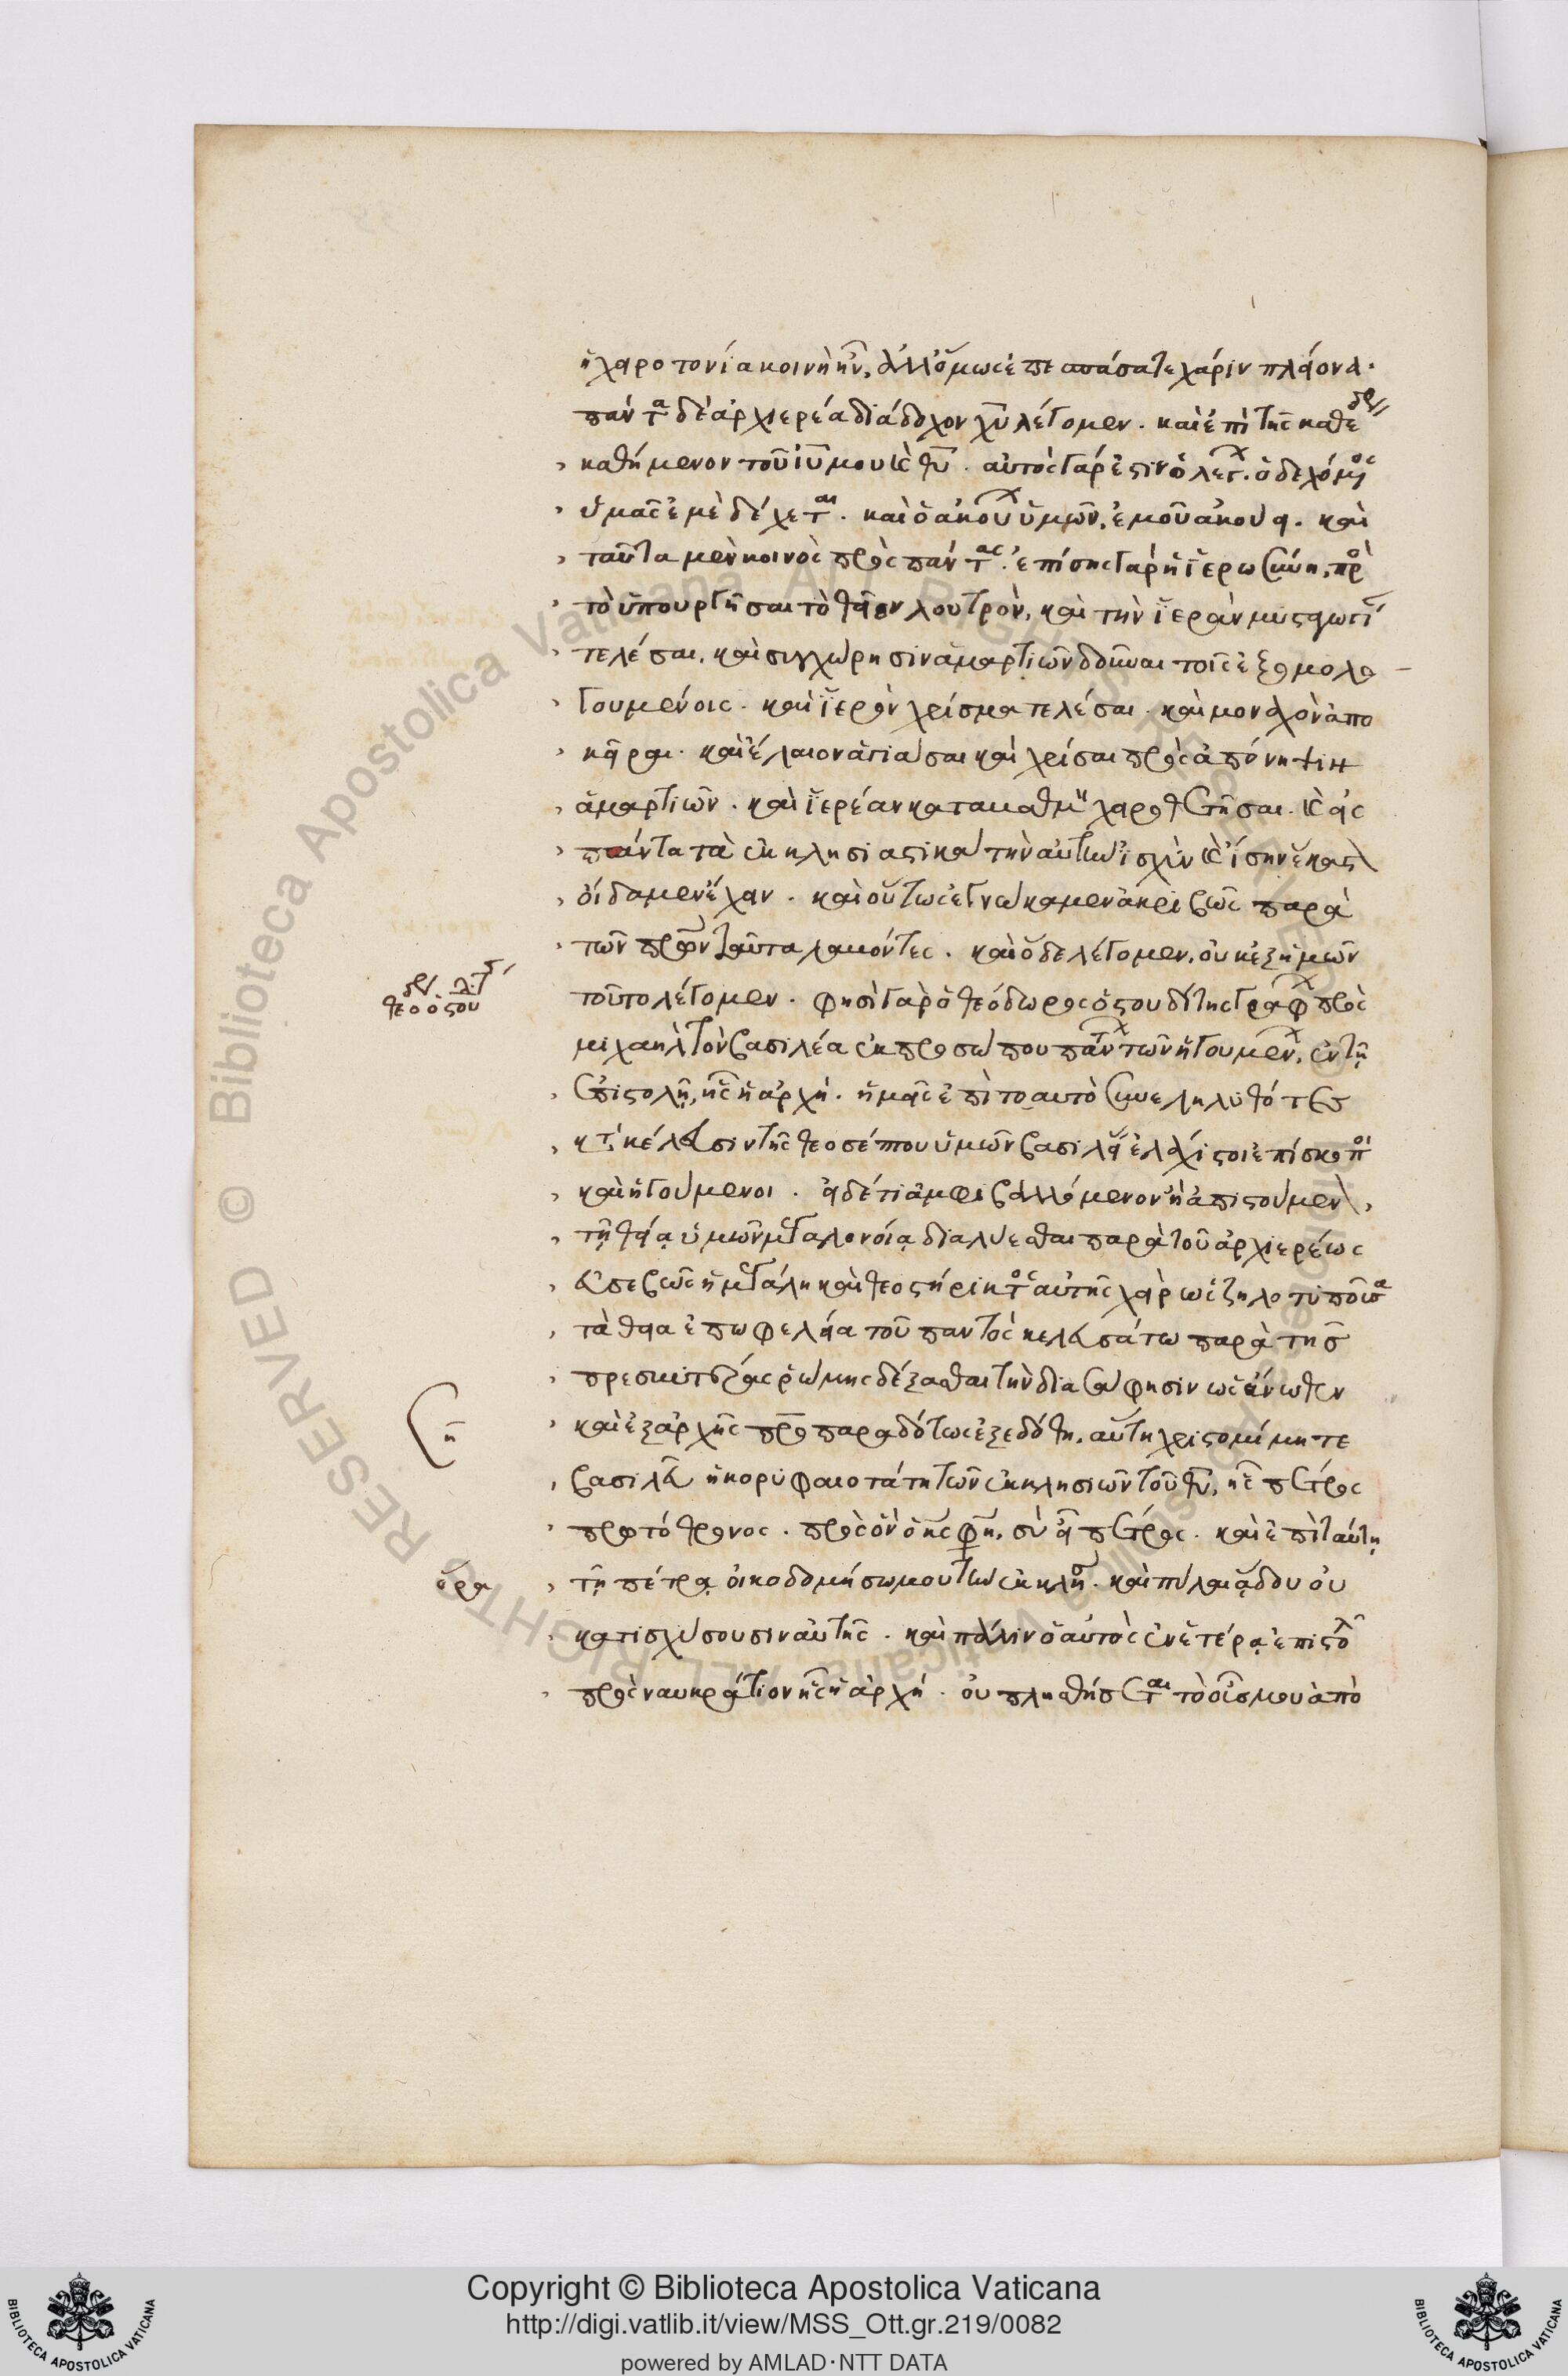 ἡ χειροτονία κοινὴ ἦν, ἀλλ' ὅμως ἐπεσπάσατε χάριν πλείονα.
πάντα δὲ ἀρχιερέα διάδοχον χυ λέγομεν. καὶ ἐπὶ τῆς καθέδρας
καθήμενον τοῦ ιυ μου καὶ θυ. αὐτὸς γάρ ἐστιν ὁ λέγων. ὁ δεχόμενος
ὑμᾶς ἐμὲ δέχεται. καὶ ὁ ἀκούων ὑμῶν, ἐμοῦ ἀκούει. καὶ
ταῦτα μὲν κοινῶς πρὸς πάντας. ἐπίσης γὰρ ἡ ἱερωσύνη, πρὸς
τὸ ὑπουργῆσαι τὸ θεῖον λουτρὸν, καὶ τὴν ἱερὰν μυσταγωγίαν
τελέσαι. καὶ συγχώρησιν ἁμαρτιῶν δοῦναι τοῖς ἐξομολο
γουμένοις. καὶ ἱερὸν χρίσμα τελέσαι. καὶ μοναχὸν ἀπο
κεῖραι. καὶ ἔλαιον ἁγιάσαι καὶ χρίσαι πρὸς ἀπόνιψιν
ἁμαρτιῶν. καὶ ἱερέαν καταβαθμὸν χειροθετῆσαι. καὶ εἰς
πάντα τὰ ἐκκλησιαστικὰ τὴν αὐτὴν ἰσχὺν καὶ ἴσην ἕκαστον
οἴδαμεν ἔχειν. καὶ οὕτως ἔγνωκαμεν ἀκριβῶς παρὰ
τῶν πρων ταῦτα λαβόντες. καὶ ὅδε λέγομεν, οὐκ ἐξ ἡμῶν
τοῦτο λέγομεν. φησὶ γὰρ ὁ θεόδωρος ὁ στουδίτης γράφων πρὸς
μιχαὴλ τὸν βασιλέα ἐκ προσώπου πάντων τῶν ἡγουμένων, ἐν τῇ
ἐπιστολῇ, ἧς ἡ ἀρχή. ἡμεῖς ἐπὶ τοαυτὸ συνεληλυθότες
κτ κέλευσιν τῆς θεοσέπτου ὑμῶν βασιλείας ἐλάχιστοι ἐπίσκοποι
καὶ ἡγούμενοι. εἰ δέ τι ἀμφιβαλλόμενον ἢ ἀπιστούμενον,
τῇ θείᾳ ὑμῶν μεγαλονοίᾳ διαλύεσθαι παρὰ τοῦ ἀρχιερέως
εὐσεβῶς ἡ μεγάλη καὶ θεοστήρικτος αὐτῆς χεὶρ ὡς ζηλοτυποῦσα
τὰ θεῖα ἐπωφελείᾳ τοῦ παντὸς κελευσάτω παρὰ τῆς
πρεσβυτέρας ῥώμης δέξασθαι τὴν διασάφησιν ὡς ἄνωθεν
καὶ ἐξαρχῆς προπαραδότως ἐξεδόθη. αὕτη χριστομίμητε
βασιλεῦ ἡ κορυφαιοτάτη τῶν ἐκκλησιῶν τοῦ θυ, ἧς πέτρος
πρωτόθρονος. πρὸς ὃν ὁ κς φησι, σὺ εἶ πέτρος. καὶ ἐπὶ ταύτῃ
τῇ πέτρᾳ οἰκοδομήσω μου τὴν ἐκκλησίαν. καὶ πύλαι ᾅδου οὐ
κατισχύσουσιν αὐτῆς. καὶ πάλιν ὁ αὐτὸς ἐν ἑτέρᾳ ἐπιστολῇ
πρὸς ναυκράτιον ἧς ἡ ἀρχή. οὐ πλησθήσεται τὸ οὖς μου ἀπὸ
θεο ὁ στου
ση
ὅρα
Copyright © Biblioteca Apostolica Vaticana
http://digi.vatlib.it/view/MSS_Ott.gr.219/0082
powered by AMLAD·NTT DATA